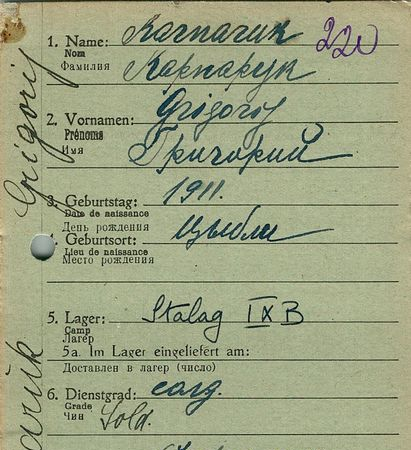 1. Name: Karnaruk 220
Nom
Фамилия Карнарук
2. Vornamen: Grigorij
Prénoms
Имя Григорий
3. Geburtstag: 1911.
Date de naissance
День рождения
4. Geburtsort: Цыбли
Lieu de naissance
Место рождения
5. Lager: Stalag IXB
Camp
Лагерь
5a. Im Lager eingeliefert am:
Доставлен в лагер (число)
6. Dienstgrad: солд.
Grade
Чин Sold.
Grigorij